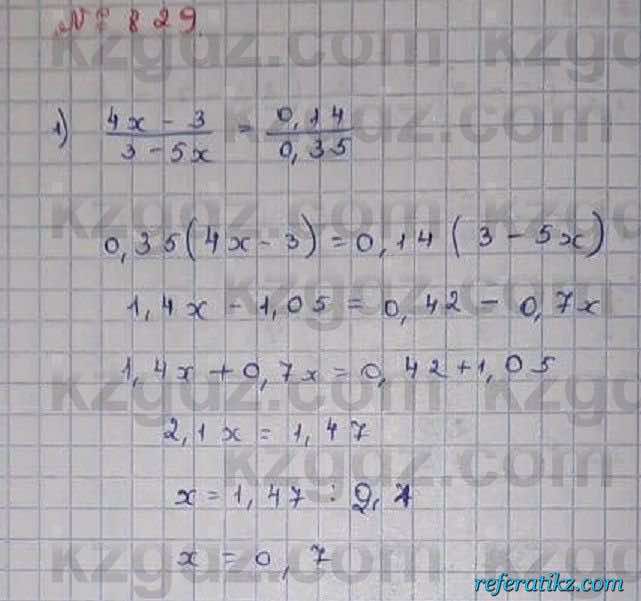 № 829.
1) (4x - 3)/(3 - 5x) = 0,14/0,35
0,35(4x - 3) = 0,14(3 - 5x)
1,4x - 1,05 = 0,42 - 0,7x
1,4x + 0,7x = 0,42 + 1,05
2,1x = 1,47
x = 1,47 : 2,1
x = 0,7
kzgdz.com
referatikz.com